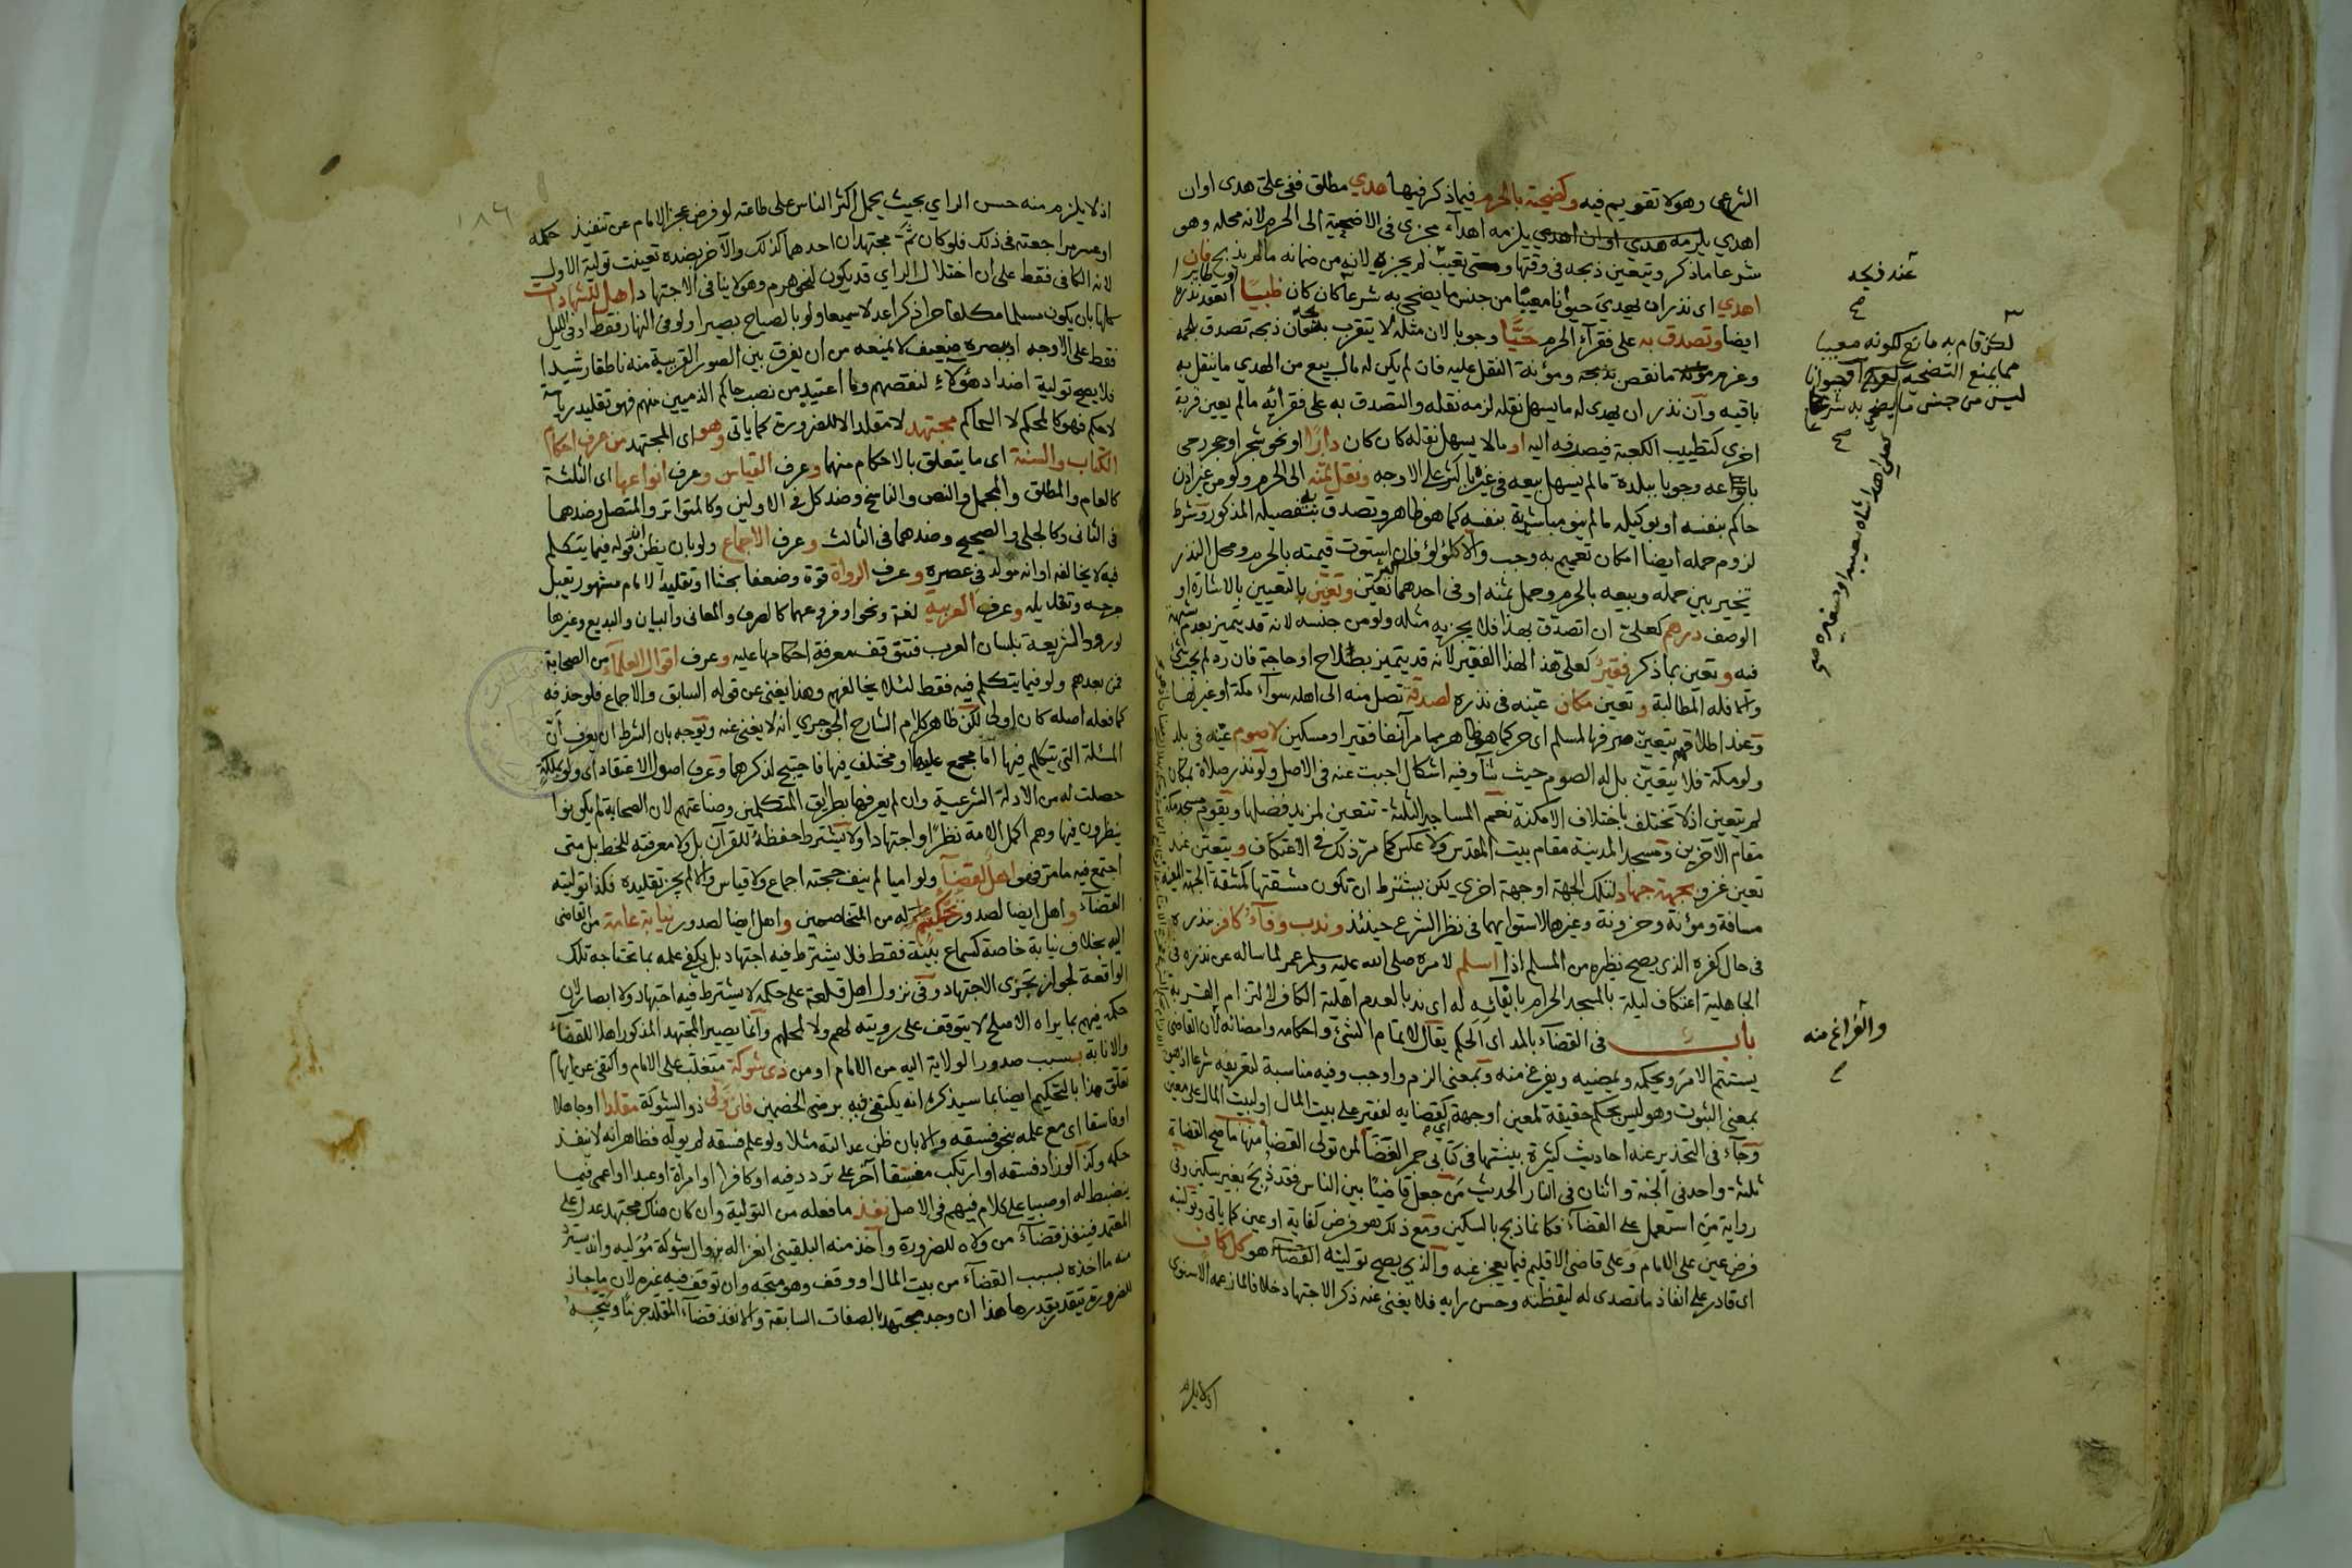 الشرعى وهو لا تقويم فيه وكضحيته بالحرم فيما ذكر فيها هدي مطلق ففى علىّ هدى او ان
اهدي يلزمه هدي او ان اهدي يلزمه اهدآء مجزى فى الاضحية الى الحرم لانه محله وهو
شرعا ما ذكر ويتعين ذبحه فى وقتها تعيّب لم يجزه لانه من ضمانه مالم يذبح فان
اهدي اى نذر ان يهدي حيوانا معيبًا من جنس ما يضحى به شرعا كان كان ظبيًا انعقد نذره
ايضا وتصدق به على فقرآء الحرم حيًّا وجوبا لان مثله لا يتقرب بذبحه ذبحه تصدق بلحمه
وغرم ما نقص بذبحه ومؤنة النقل عليه فان لم يكن له مال بيع من الهدي ما ينقل به
باقيه وان نذر ان يهدى له ما يسهل نقله لزمه نقله والتصدق به على فقرائه مالم يعين قربة
اخرى كتطييب الكعبة فيصرفه اليه او مالا يسهل نقله كان كان دارًا او نحو شجر او حجر رحى
باعه وجوبا ببلده مالم يسهل بيعه فى غيره باكثر على الاوجه ونقل ثمنه الى الحرم ولو من غير اذن
حاكم بنفسه او بوكيله مالم ينو مباشرته بنفسه كما هو ظاهر وتصدق بتفصيله المذكور وشرط
لزوم حمله ايضا امكان تعميم به وجب والا كلؤلؤ فان استوت قيمته بالحرم ومحل النذر
تخير بين حمله وبيعه بالحرم وحمل ثمنه او فى احدهما تعين وتعيّن بالتعيين بالاشارة او
الوصف درهم كعلىّ ان اتصدق بهذا فلا يجزيه مثله ولو من جنسه لانه قد يتميز بعدم شبهة
فيه وتعين بما ذكر فقيرٌ كعلى هذا لهذا الفقير لانه قد يتميز بصلاح او حاجة فان رده لم يجب شئ
والا فله المطالبة وتعين مكان عيّنه فى نذره لصدقة تصل منه الى اهله سوآء مكة او غيرها
وعند اطلاقهم يتعين صرفها لمسلم اى حر كما هو ظاهر مما مر آنفا فقير او مسكين لا صوم عيّنه فى بلد
ولو مكة فلا يتعيّن بل له الصوم حيث شآ وفيه اشكال اجبت عنه فى الاصل ولو نذر صلاة بمكان
لم يتعين اذ لا تختلف باختلاف الامكنة نعم المساجد الثلثة تتعين لمزيد فضلها ويقوم مسجد مكة
مقام الآخرين ومسجد المدينة مقام بيت المقدس ولا عكس كما مرّ ذلك فى الاعتكاف ويتعين عند
تعين غزو بجهة جهاد لتلك الجهة او جهة اخرى لكن بشترط ان تكون مشقتها كمشقة الجهة المعينة
مسافة ومؤنة وحزونة وغيرها لاستوايهما فى نظر الشرع حينئذ وندب وفآء كافر بنذره
فى حال كفره الذى يصح نظيره من المسلم اذا اسلم لامره صلى الله عليه وسلم عمر لما ساله عن نذره فى
الجاهلية اعتكاف ليلة بالمسجد الحرام بايفآئه له اى ندبا لعدم اهلية الكافر لالتزام القربة
باب فى القضآء بالمد اى الحكم يقال لاتمام الشئ واحكامه وامضائه لان القاضى
يستتم الامر ويحكمه ويمضيه ويفرغ منه وبمعنى الزم واوجب وفيه مناسبة لتعريفه شرعا اذ هو
بمعنى الثبوت وهو ليس بحكم حقيقة لمعين او جهة كقضايه لفقير على بيت المال او لبيت المال على معين
وجآء فى التحذير عنه احاديث كثيرة بينتها فى كتابى جمر الغضآ لمن تولى القضآ منها ما صح القضاة
ثلثة واحد فى الجنة واثنان فى النار الحديث من جعل قاضيًا بين الناس فقد ذُبح بغير سكين وفى
رواية من استعمل على القضآء فكانما ذبح بالسكين ومع ذلك هو فرض كفاية او عين كما ياتى وتوليته
فرض عين على الامام وعلى قاضى الاقليم فيما يعجز عنه والذى يصح توليته القضآء هو كل كاف
اى قادر على انفاذ ما تصدى له ليقظته وحسن رايه فلا يغنى عنه ذكر الاجتهاد خلافا لما زعمه الاسنوى
اذ لا يلزم
عند فيجد
صح
لكن قام به مانع ككونه معيبا
مما يمنع التضحية او حيوانا
ليس من جنس ما يضحى به شرعا
صح
كعلى اهدا شاه معيبه او صغيره صح
والفراغ منه
صح
١٨٦
اذ لا يلزم منه حسن الراي بحيث يحمل اكثر الناس على طاعته لو فرض عجز الامام عن تنفيذ حكمه
او عسر مراجعته فى ذلك فلو كان ثَمّ مجتهدان احدهما كذلك والآخر بضده تعينت تولية الاول
لانه الكافى فقط على ان اختلال الراي قد يكون لنحو هرم وهو لا ينافى الاجتهاد اهل للشهادات
كلها بان يكون مسلما مكلفا حرا ذكرا عدلا سميعا ولو بالصياح بصيرا ولو فى النهار فقط او فى الليل
فقط على الاوجه او ببصره ضعيف لا يمنعه من ان يفرق بين الصور القريبة منه ناطقا رشيدا
فلا يصح تولية اضداد هؤلاء لنقصهم وما اعتيد من نصب حاكم الذميين منهم فهو تقليد رياسة
لا حكم فهو كالمحكم لا الحاكم مجتهد لا مقلد الا للضرورة كما ياتى وهو اى المجتهد من عرف احكام
الكتاب والسنة اى ما يتعلق بالاحكام منهما وعرف القياس وعرف انواعها اى الثلثة
كالعام والمطلق والمجمل والنص والناسخ وضد كل فى الاولين وكالمتواتر والمتصل وضدهما
فى الثانى وكالجلى والصحيح وضدهما فى الثالث وعرف الاجماع ولو بان يظن ان قوله فيما يتكلم
فيه لا يخالفه او انه مولد فى عصره وعرف الرواة قوة وضعفا بحثا او تقليدا لامام مشهور يقبل
جرحه وتعديله وعرف العربيه لغة ونحوا وفروعهما كالصرف والمعانى والبيان والبديع وغيرها
لورود الشريعة بلسان العرب فتتوقف معرفة احكامها عليه وعرف اقوال العلمآء من الصحابة
فمن بعدهم ولو فيما يتكلم فيه فقط لئلا يخالفهم وهذا يغنى عن قوله السابق والاجماع فلو حذفه
كما فعله اصله كان اولى لكن ظاهر كلام الشارح الجوجري انه لا يغنى عنه ويوجه بان الشرط ان يعرف ان
المسئلة التى يتكلم فيها اما مجمع عليها او مختلف فيها فاحتيج لذكرهما وعرف اصول الاعتقاد اى ولو بملكة
حصلت له من الادلة الشرعية وان لم يعرفها بطرايق المتكلمين وصناعتهم لان الصحابة لم يكونوا
ينظرون فيها وهم اكمل الامة نظرًا واجتهادا ولا يشترط حفظه للقرآن بل ولا معرفته للخط بل متى
اجتمع فيه ما مر فهو اهل لقضآء ولو اميا لم ينف حجته اجماع ولا قياس والا لم يجز تقليده فكذا توليته
القضآء واهل ايضا لصدور تحكيم له من المتخاصمين واهل ايضا لصدور نيابة عامة من القاضى
اليه بخلاف نيابة خاصة كسماع بينة فقط فلا يشترط فيه اجتهاد بل يكفى علمه بما تحتاجه تلك
الواقعة لجواز تجزى الاجتهاد وفى نزول اهل قلعة على حكمه لا يشترط فيه اجتهاد ولا ابصار لان
حكمه فيهم بما يراه الاصلح لا يتوقف على رويته لهم ولا لمحلهم وانما يصير المجتهد المذكور اهلا للقضآء
والانابة بسبب صدور الولاية اليه من الامام او من ذى شوكة متغلب على الامام واكتفى عن ايهام
تعلق هذا بالتحكيم ايضا بما سيذكره انه يكتفى فيه برضى الخصمين فان وَلّى ذو الشوكة مقلدا او جاهلا
او فاسقا اى مع علمه بنحو فسقه والا بان ظن عدالته مثلا ولو علم فسقه لم يوله فظاهر انه لا ينفذ
حكمه وكذا لو زاد فسقه او ارتكب مفسقا آخر على تردد فيه او كافرا او امراة او عبدا او اعمى فيما
ينضبط له او صبيا على كلام فيهم فى الاصل نفذ ما فعله من التولية وان كان هناك مجتهد عدل على
المعتمد فينفذ قضآء من ولاه للضرورة وآخذ منه البلقينى انعزاله بزوال شوكة مُوَليه وانه يسترد
منه ما اخذه بسبب القضآء من بيت المال او وقف وهو متجه وان توقف فيه غيره لان ما جاز
للضرورة يتقدر بقدرها هذا ان وجد مجتهد بالصفات السابقة والا نفذ قضآء المقلد جزما ويتجه